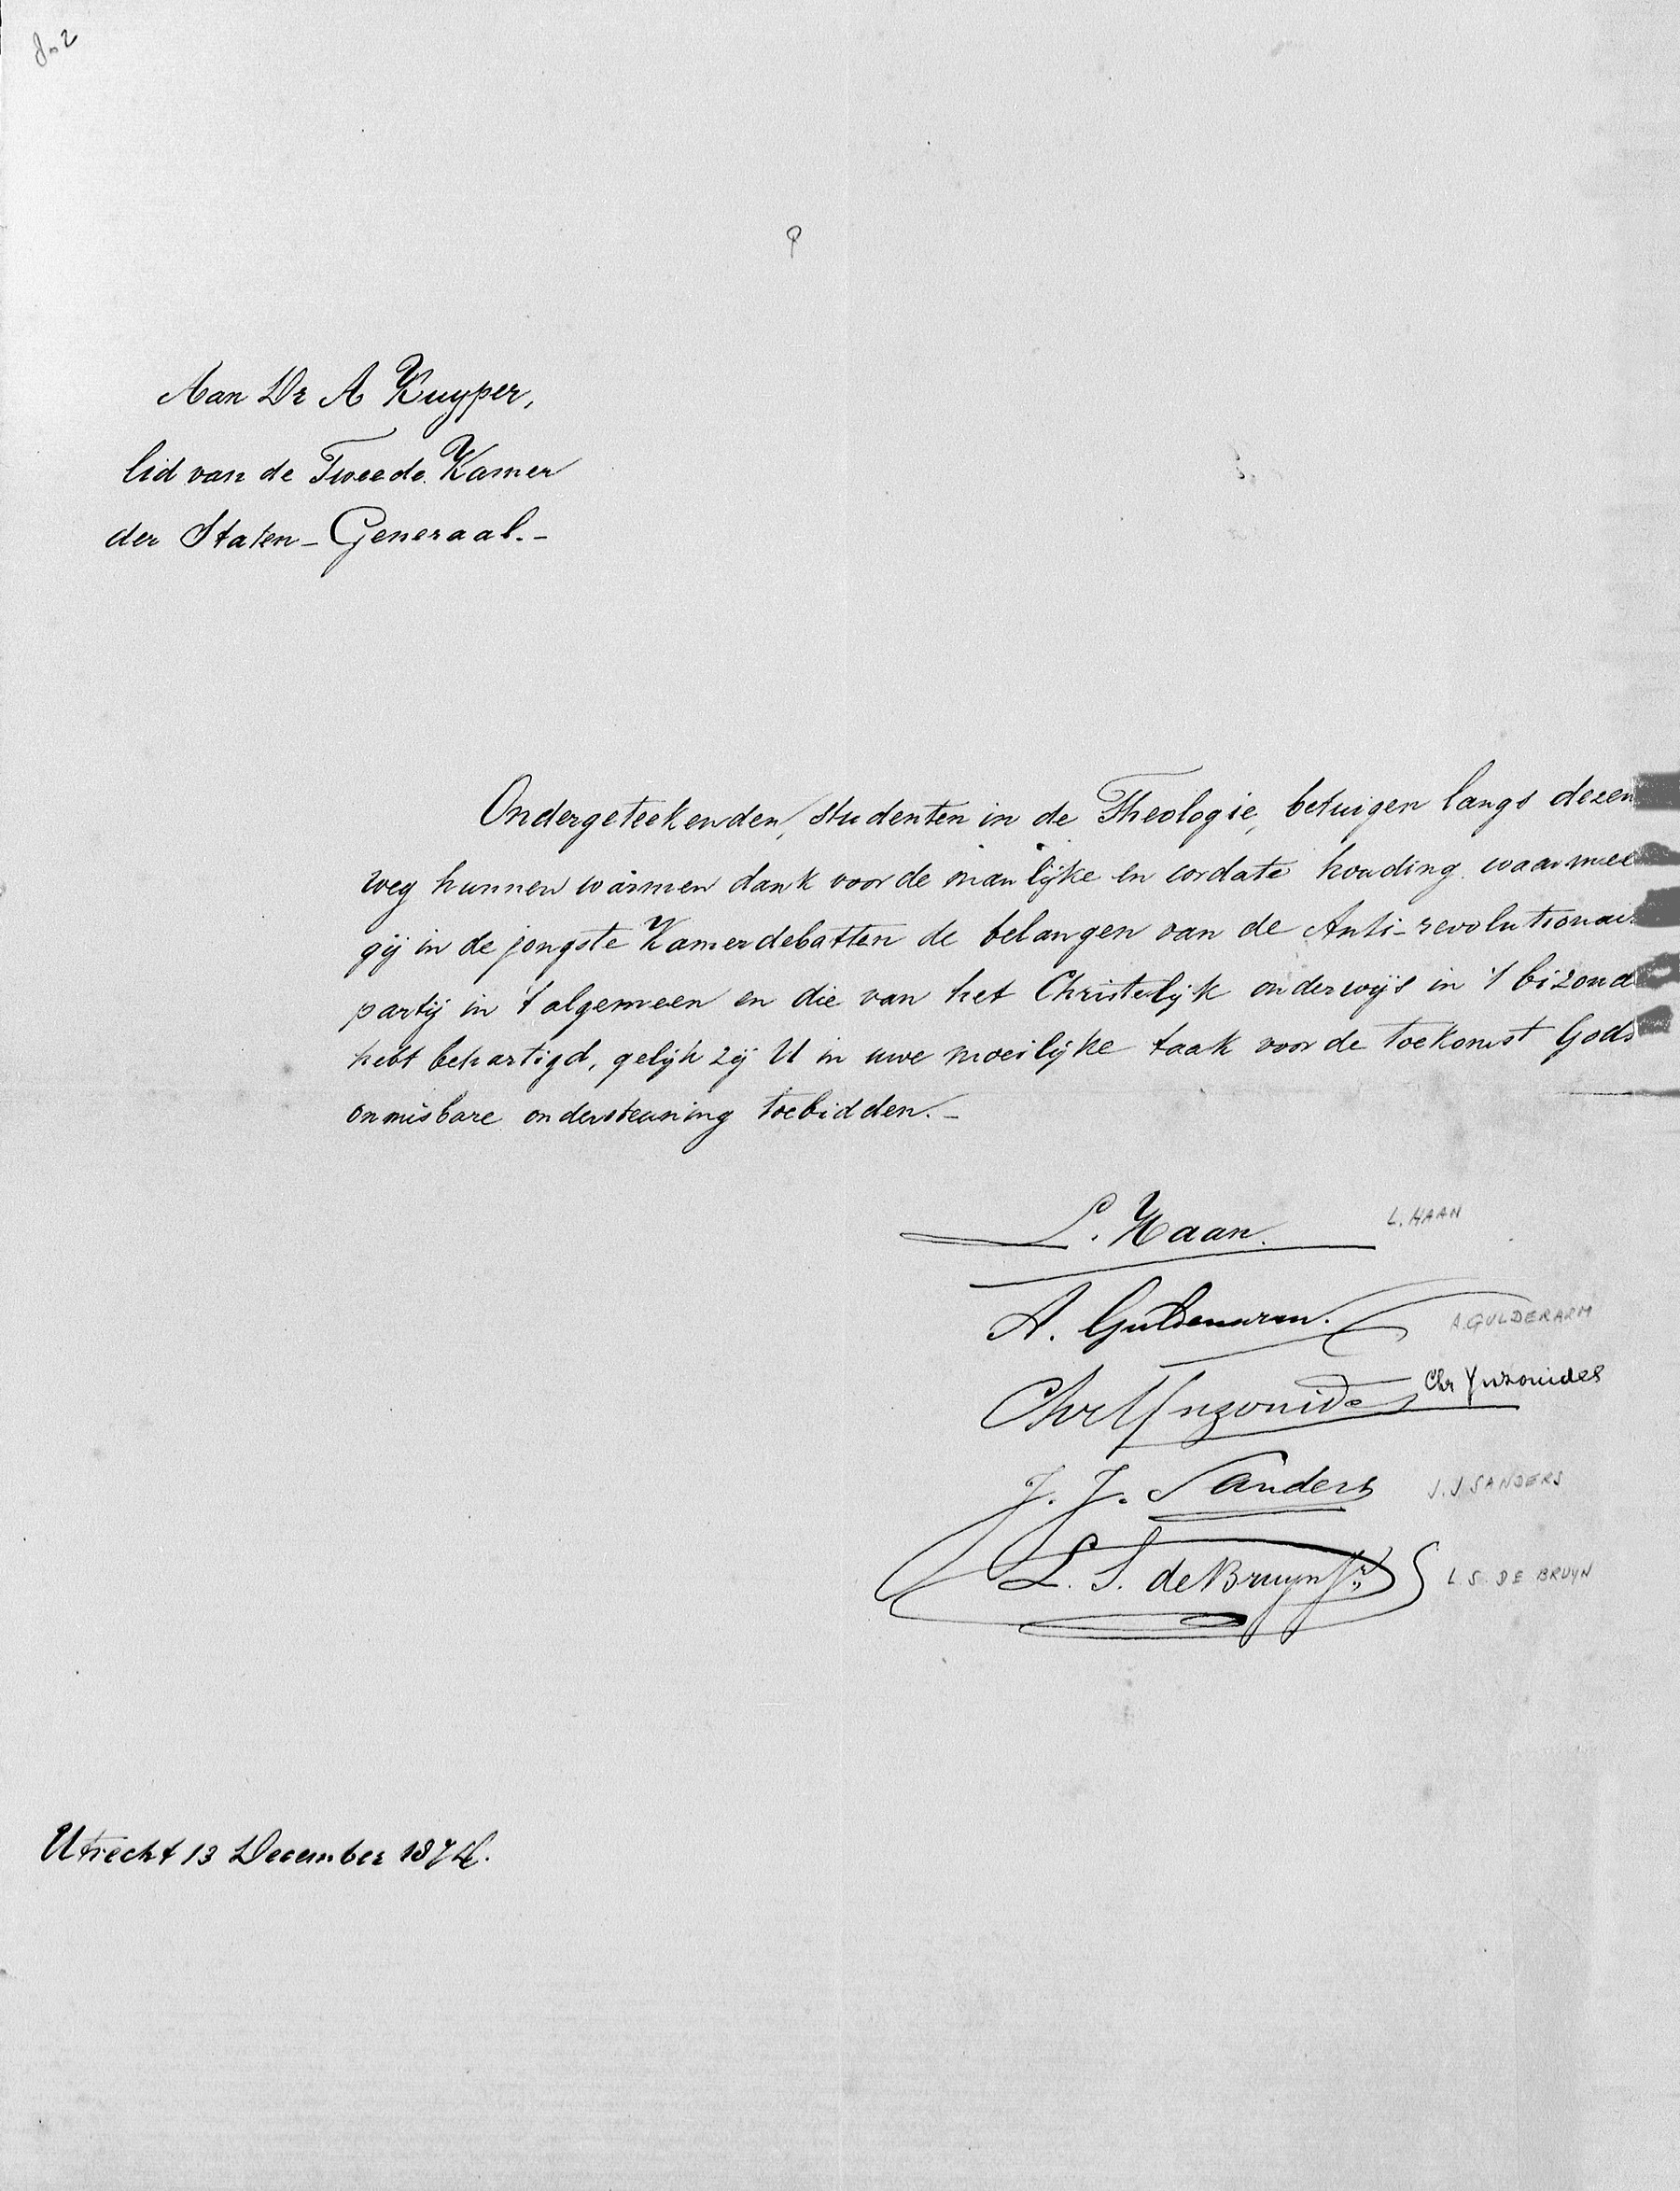 Aan Dr A Kuyper,
lid van de Tweede Kamer
der Staten-Generaal.-
Ondergeteekenden, studenten in de Theologie, betuigen langs dezen
weg hunnen warmen dank voor de manlijke en cordate houding waarmee
gij in de jongste Kamerdebatten de belangen van de Anti-revolutionai
partij in 't algemeen en die van het Christelijk onderwijs in 't bizond
hebt behartigd, gelijk zij U in uwe moeilijke taak voor de toekomst Gods
onmisbare ondersteuning toebidden.-
L. Haan. L. HAAN
A. Guldenarm. A. GULDERARM
Chr Ynzonides Chr Ynzonides
J. J. Sanders J. J SANDERS
L. S. de Bruyn Jr. L. S. DE BRUYN
Utrecht 13 December 1874.